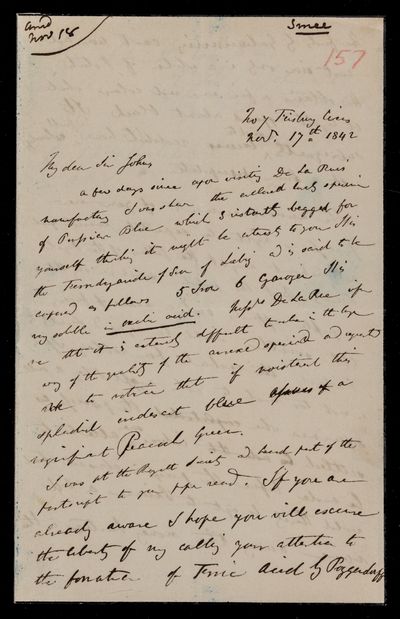 And
Nov 18
Smee
157
No 7 Finsbury Circus
Novr. 17th 1842
My dear Sir John
a few days since upon visiting De La Rue's
manufactory I was shewn the enclosed lovely specimen
of Prussian Blue which I instantly begged for
yourself thinking it might be interesting to you It is
the Ferrosesquicyanide of Iron of Liebig and is said to be
composed as follows 5 Iron 6 Cyanogen It is
very soluble in oxalic acid. Messrs De La Rue
me that it is extremely difficult to in the large
way of the quality of the annexed specimen and
to notice that if moistened this
splendid iridescent blue a
magnificent Peacock Green.
I was at the Royal Society and heard part of the
postscript to your paper read. If you are
already aware I hope you will excuse
the liberty of my calling your attention to
the formation of Ferric Acid by Poggendorff